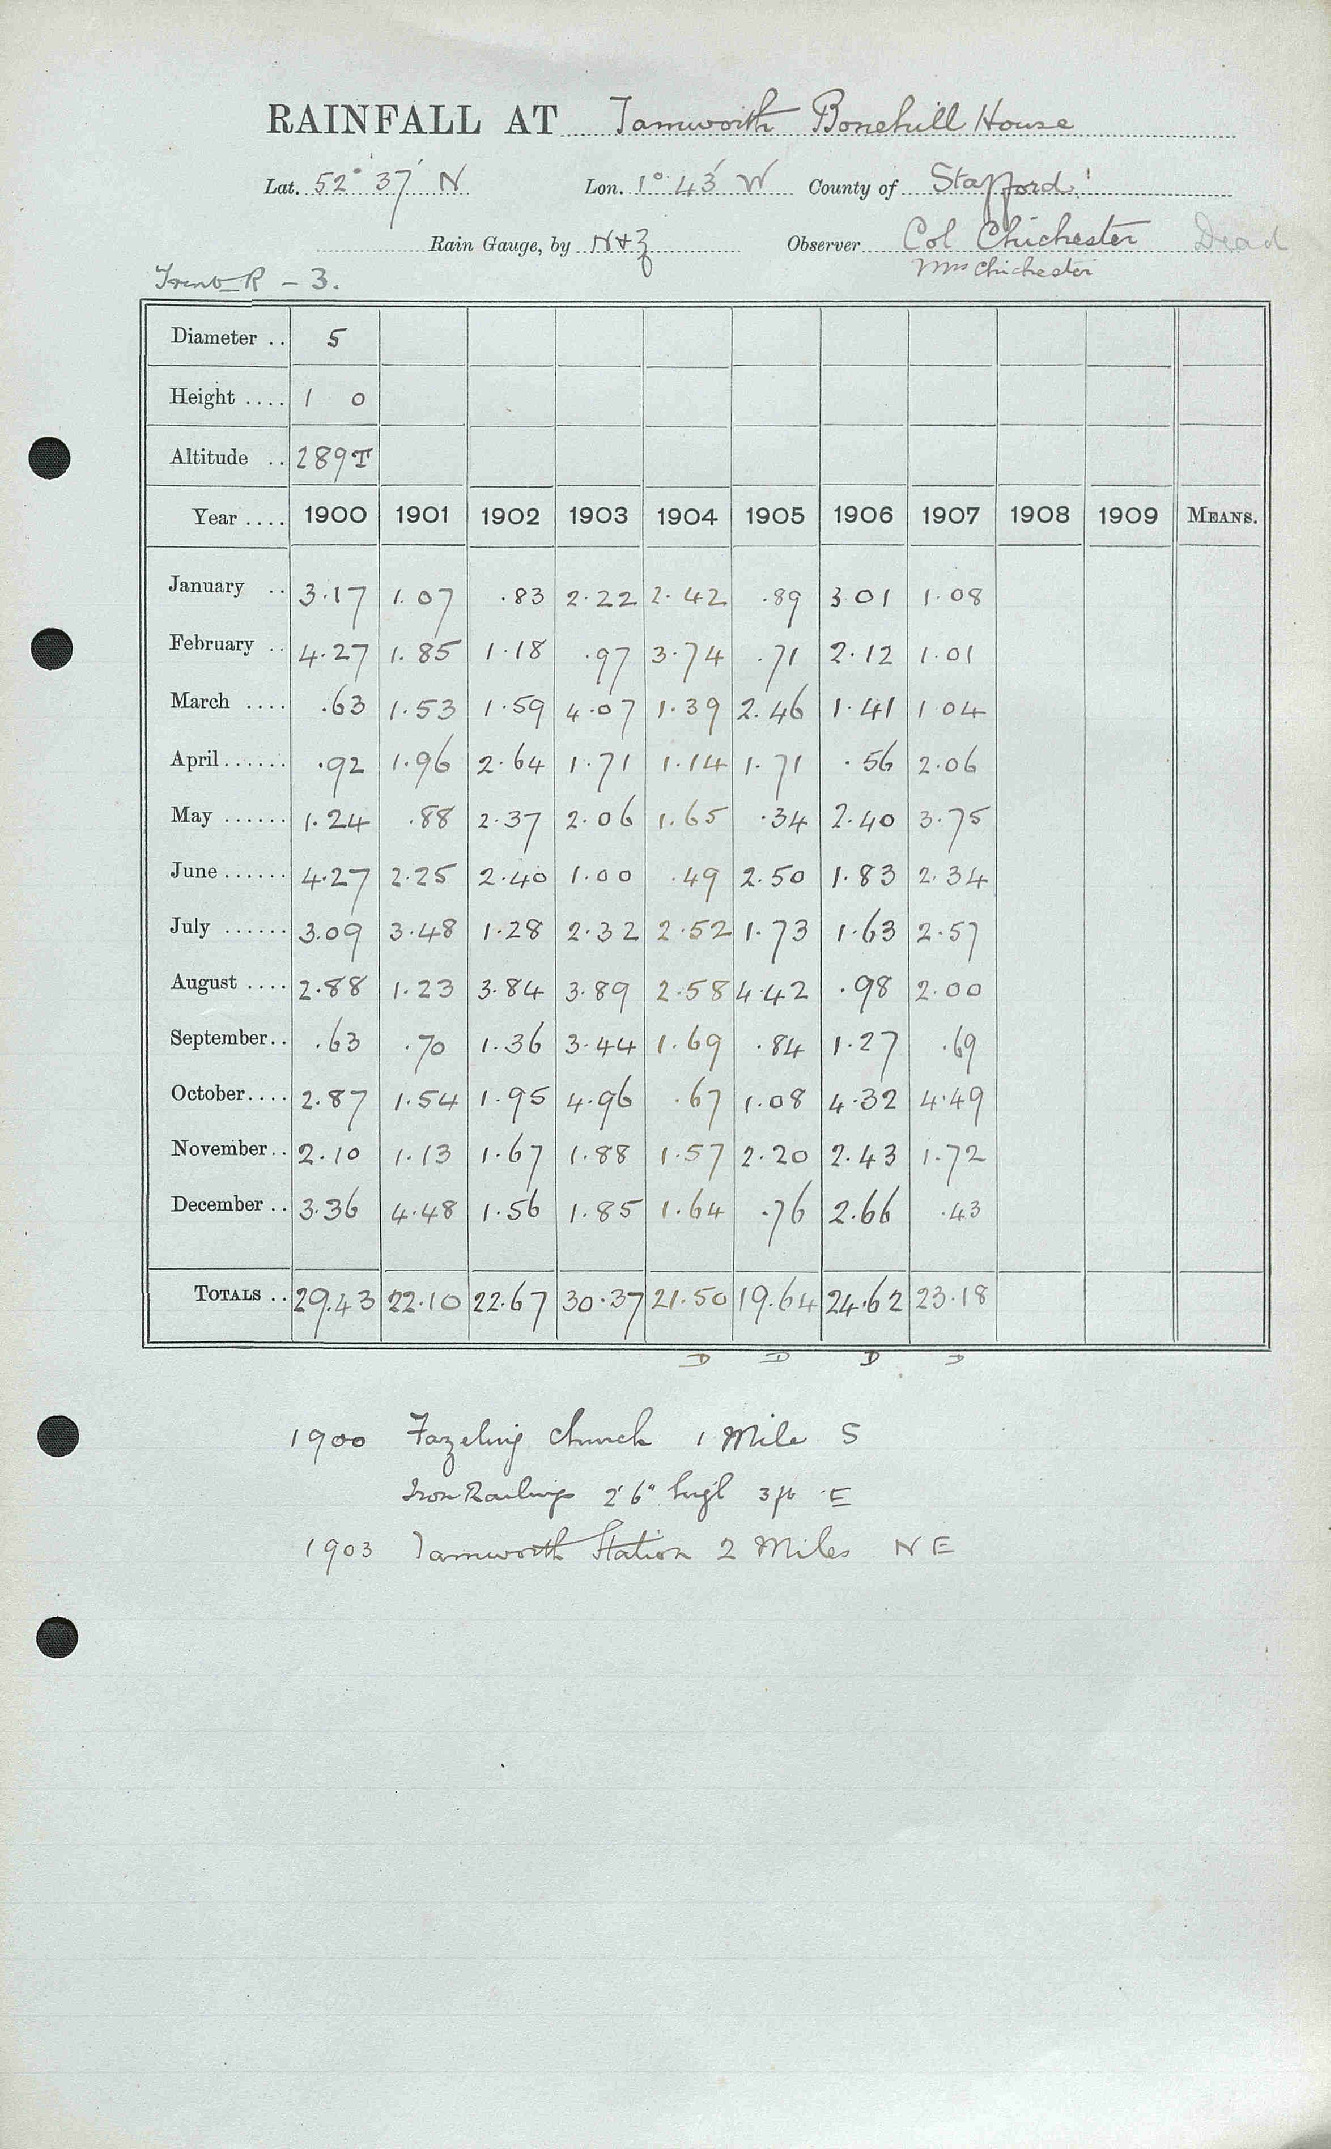 RAINFALL AT Tamworth Bonehill House
Lat. 52° 37' N Lon. 1° 43' W County of Stafford
Rain Gauge, by N+Z Observer Col Chichester Dead
Mrs Chichester
Trent R - 3.
Diameter .. 5
Height .... 1 0
Altitude .. 289T
Year .... 1900 1901 1902 1903 1904 1905 1906 1907 1908 1909 MEANS.
January .. 3.17 1.07 .83 2.22 2.42 .89 3.01 1.08
February .. 4.27 1.85 1.18 .97 3.74 .71 2.12 1.01
March .... .63 1.53 1.59 4.07 1.39 2.46 1.41 1.04
April...... .92 1.96 2.64 1.71 1.14 1.71 .56 2.06
May ...... 1.24 .88 2.37 2.06 1.65 .34 2.40 3.75
June ...... 4.27 2.25 2.40 1.00 .49 2.50 1.83 2.34
July ...... 3.09 3.48 1.28 2.32 2.52 1.73 1.63 2.57
August .... 2.88 1.23 3.84 3.89 2.58 4.42 .98 2.00
September.. .63 .70 1.36 3.44 1.69 .84 1.27 .69
October.... 2.87 1.54 1.95 4.96 .67 1.08 4.32 4.49
November.. 2.10 1.13 1.67 1.88 1.57 2.20 2.43 1.72
December .. 3.36 4.48 1.56 1.85 1.64 .76 2.66 .43
TOTALS .. 29.43 22.10 22.67 30.37 21.50 19.64 24.62 23.18
D D D D
1900 Fazeling Church 1 Mile S
Iron Railings 2' 6" high 3 ft E
1903 Tamworth Station 2 Miles NE